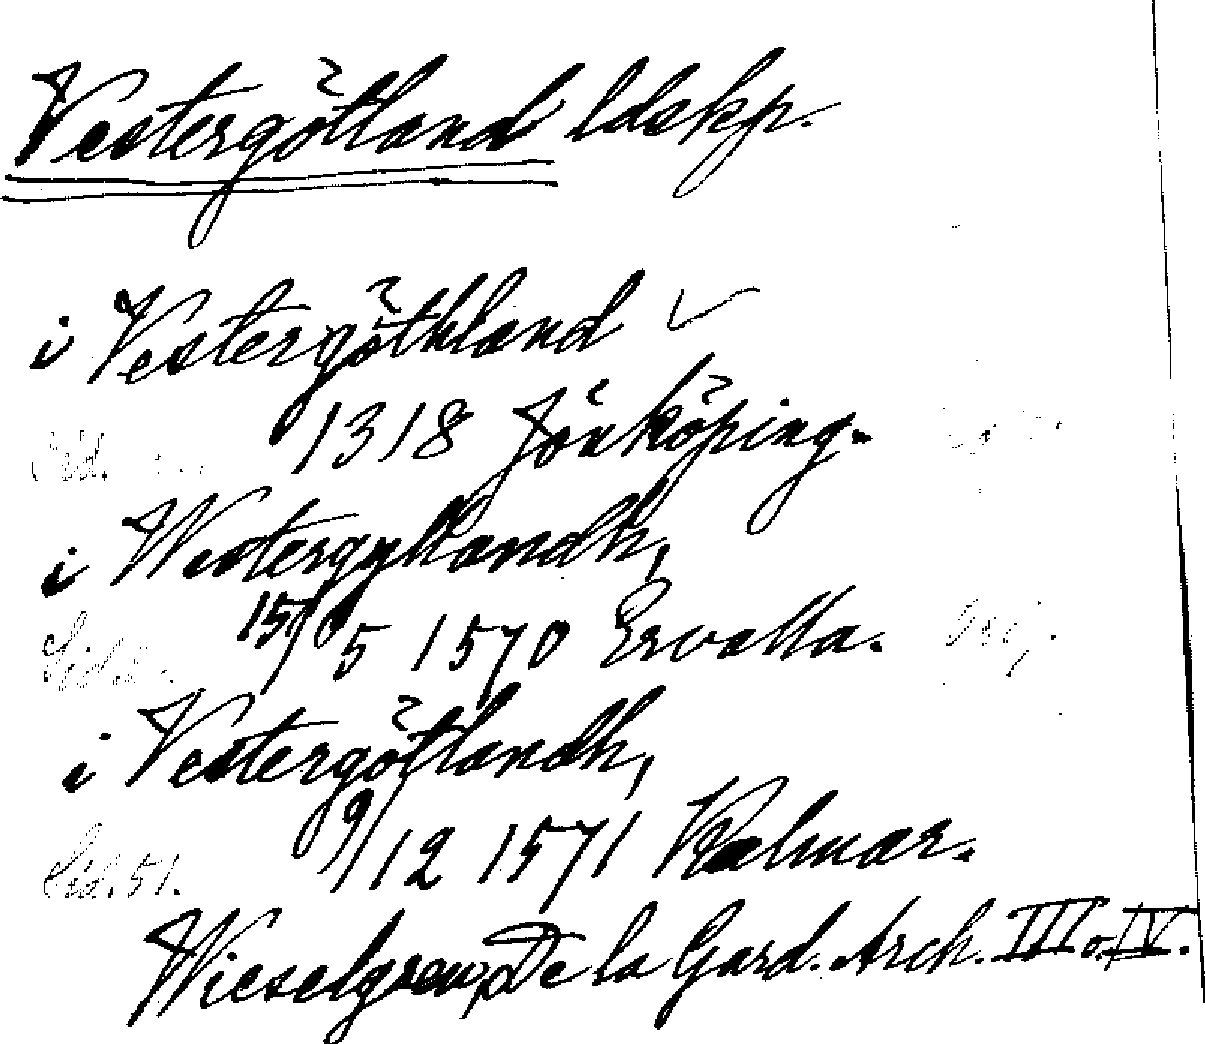 Vestergötland ldskp.
i Vestergöthland
Sid. 1318 Jönköping.
i Westergyllandh,
15/5 1570 Ervalla.
i Vestergötlandh,
Sid. 51. 9/12 1571 Kalmar.
Wieselgren, De la Gard. Arch. III o. IV.